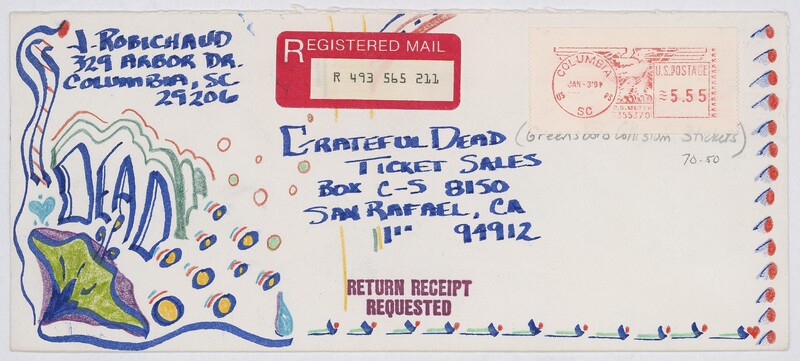 J. ROBICHAUD
329 ARBOR DR.
COLUMBIA, SC
29206
DEAD
REGISTERED MAIL
R 493 565 211
COLUMBIA
JAN-3'91
SC
U.S. POSTAGE
5.55
GRATEFUL DEAD
TICKET SALES
BOX C-S 8150
SAN RAFAEL, CA
94912
(Greensboro Coliseum 3 tickets)
70.50
RETURN RECEIPT
REQUESTED